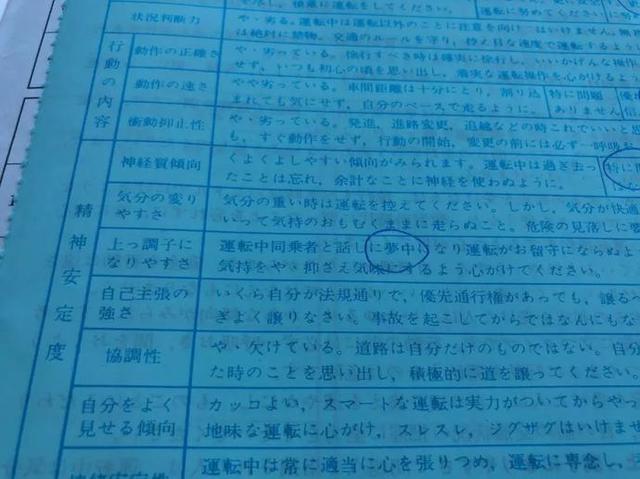 状況判断力
や・劣る。運転中は運転以外のことに注意を向けてはいけません。無
は絶対に禁物。交通のルールを守り、控え目な速度で運転するよう
行動の内容
動作の正確さ
や・劣っている。徐行すべき時は確実に徐行し、いいかげんな操作
せず、いつも初心の頃を思い出し、着実な運転操作を心がけるよう
動作の速さ
やや劣っている。車間距離は十分にとり、割り込
まれても気にせず、自分のペースで走るように。
特に問題
ありません
衝動抑止性
や・劣っている。発進、進路変更、追越などの時これでいいと
も、すぐ動作をせず、行動の開始、変更の前には必ず一呼吸
精神安定度
神経質傾向
くよくよしやすい傾向がみられます。運転中は過ぎ去っ
たことは忘れ、余計なことに神経を使わぬように。
特に問
気分の変り
やすさ
気分の重い時は運転を控えてください。しかし、気分が快適
いって気持のおもむくままに走らぬこと。危険の見落しに要
上っ調子に
なりやすさ
運転中同乗者と話しに夢中になり運転がお留守にならぬよ
気持をや・抑さえ気味にするよう心がけてください。
自己主張の
強さ
いくら自分が法規通りで、優先通行権があっても、譲る
ぎよく譲りなさい。事故を起こしてからではなんにもな
協調性
や・欠けている。道路は自分だけのものではない。自分
た時のことを思い出し、積極的に道を譲ってください。
自分をよく
見せる傾向
カッコよい、スマートな運転は実力がついてからやっ
地味な運転に心がけ、スレスレ、ジグザグはいけませ
運転中は常に適当に心を張りつめ、運転に専念し、